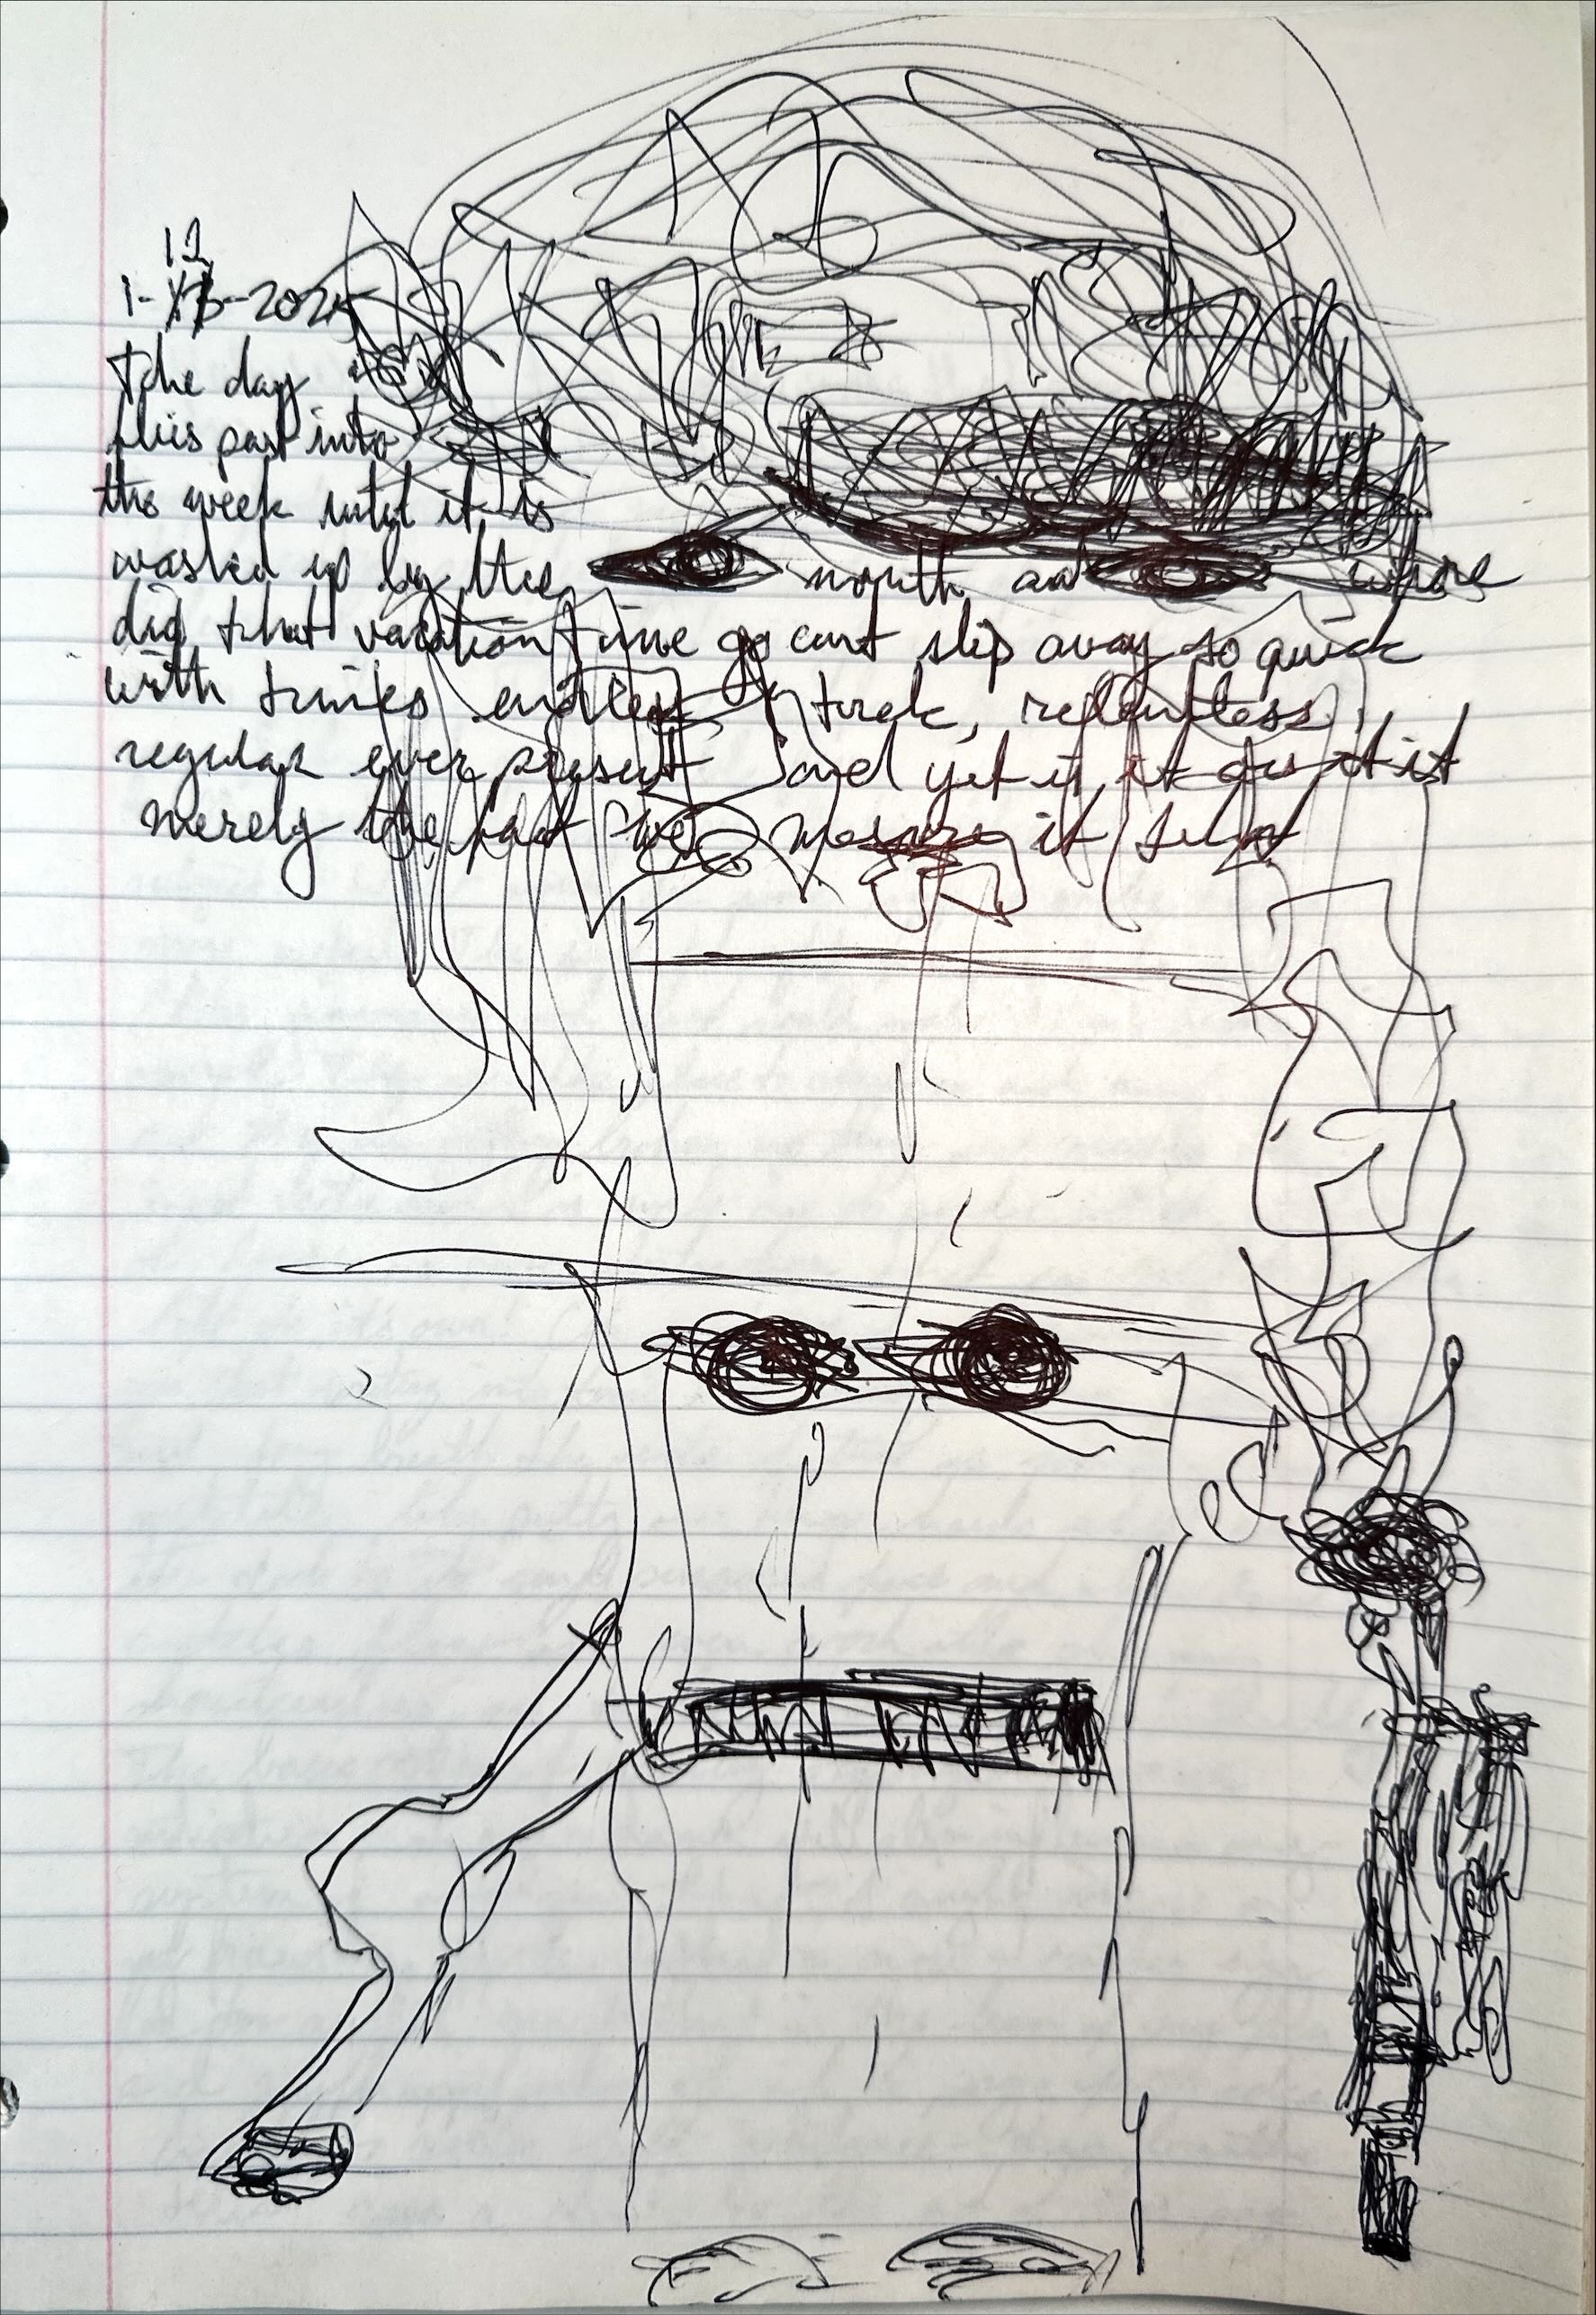 12
1-13-2025
the day
this past into
the week until it is
washed up by the month and where
did that vacation time go cant slip away so quick
with times endless trek, relentless,
regular ever present and yet it
merely the way we it